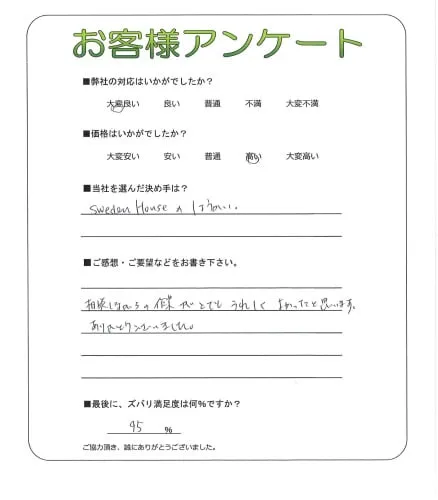 お客様アンケート
■弊社の対応はいかがでしたか？
大変良い 良い 普通 不満 大変不満
■価格はいかがでしたか？
大変安い 安い 普通 高い 大変高い
■当社を選んだ決め手は？
Sweden House の
■ご感想・ご要望などをお書き下さい。
相談しながらの作業がとてもうれしくよかったと思います。
ありがとうございました。
■最後に、ズバリ満足度は何％ですか？
95 %
ご協力頂き、誠にありがとうございました。